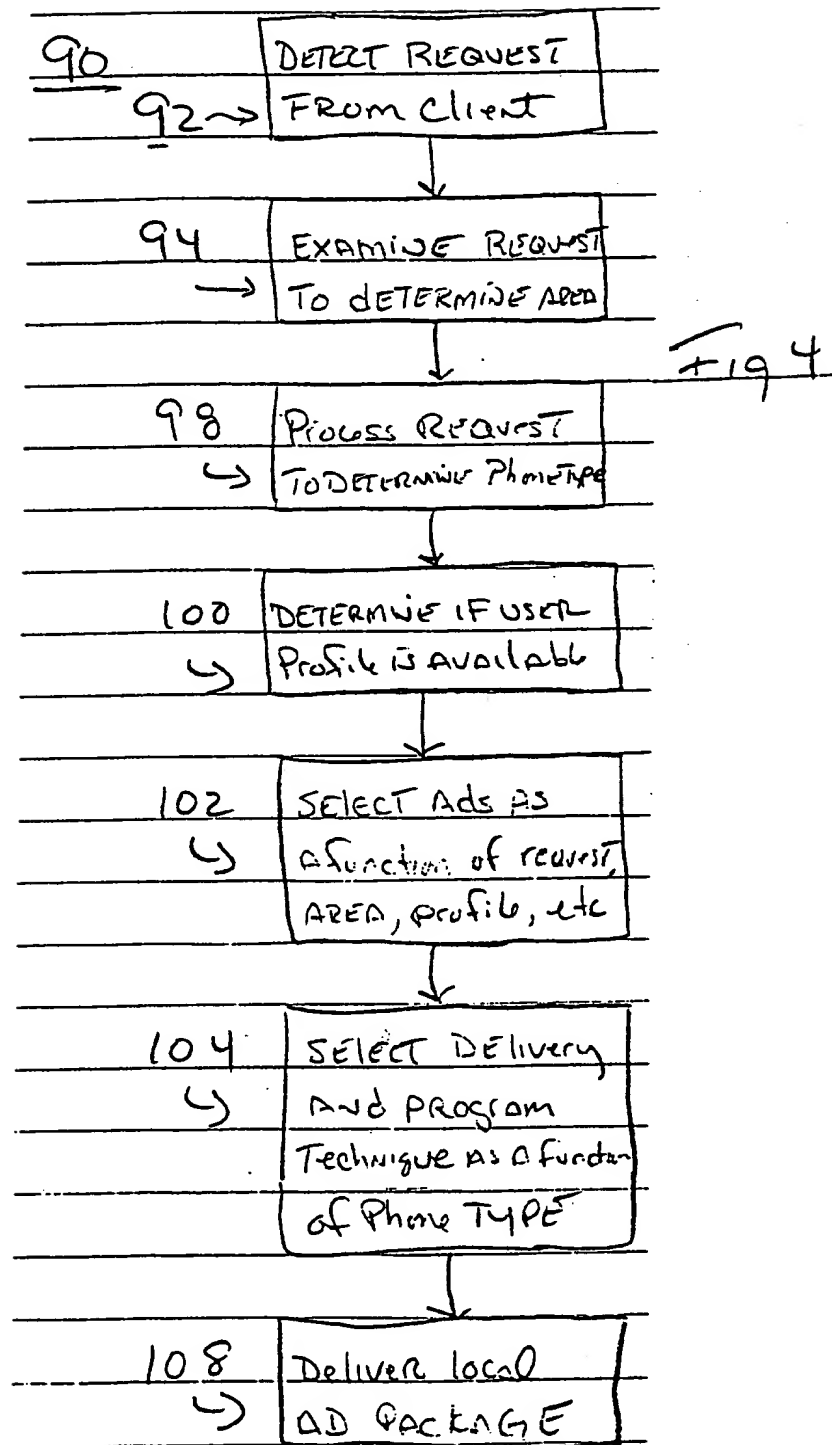 90
92 DETECT REQUEST
FROM Client
94 EXAMINE REQUEST
TO dETERMINE AREA
Fig 4
98 Process REQUEST
TO DETERMINE PhoneTYPE
100 DETERMINE IF USER
Profile is AVAilAble
102 SElECT Ads AS
A function of request,
AREA, profile, etc
104 SElECT DElivery
And PROgRAm
Technique AS A function
of Phone TYPE
108 Deliver locAl
AD PACKAGE